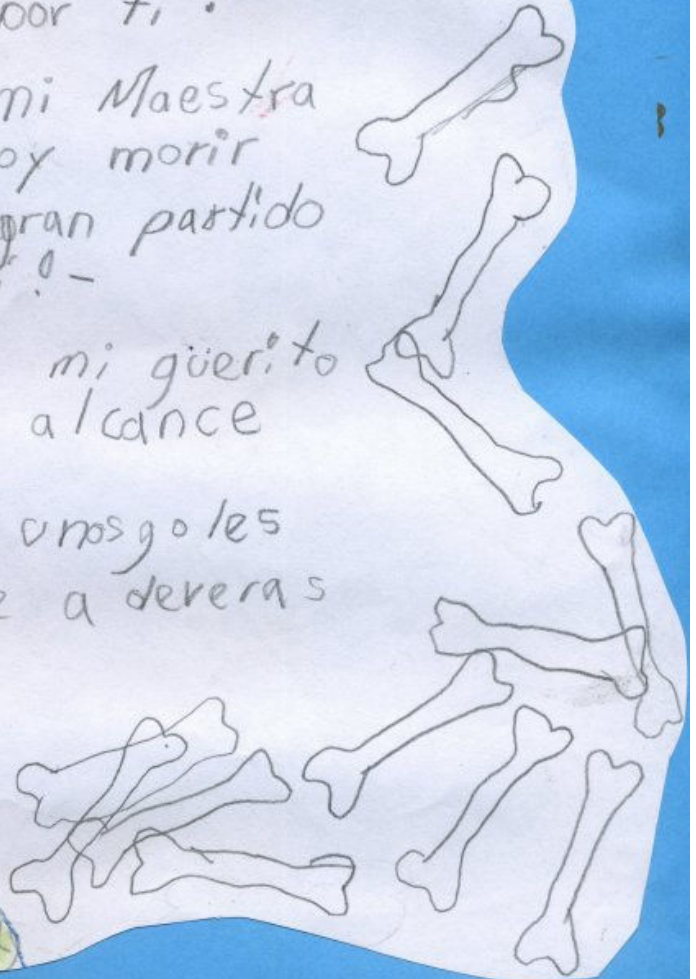 por ti.
mi Maestra
oy morir
gran partido
! -
mi güerito
alcance
unos goles
e a deveras